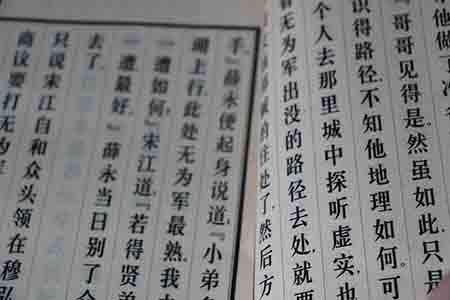 他做了
哥哥见得是.然虽如此,只是
识得路径,不知他地理如何.可
个人去那里城中探听虚实,也
看无为军出没的路径去处,就要
的住处了,然后方
手.』薛永便起身说道,『小弟多
湖上行.此处无为军最熟.我
一遭如何』宋江道,『若得贤
一遭最好.』薛永当日别了
去了.
只说宋江自和众头领在穆
商议要打无为